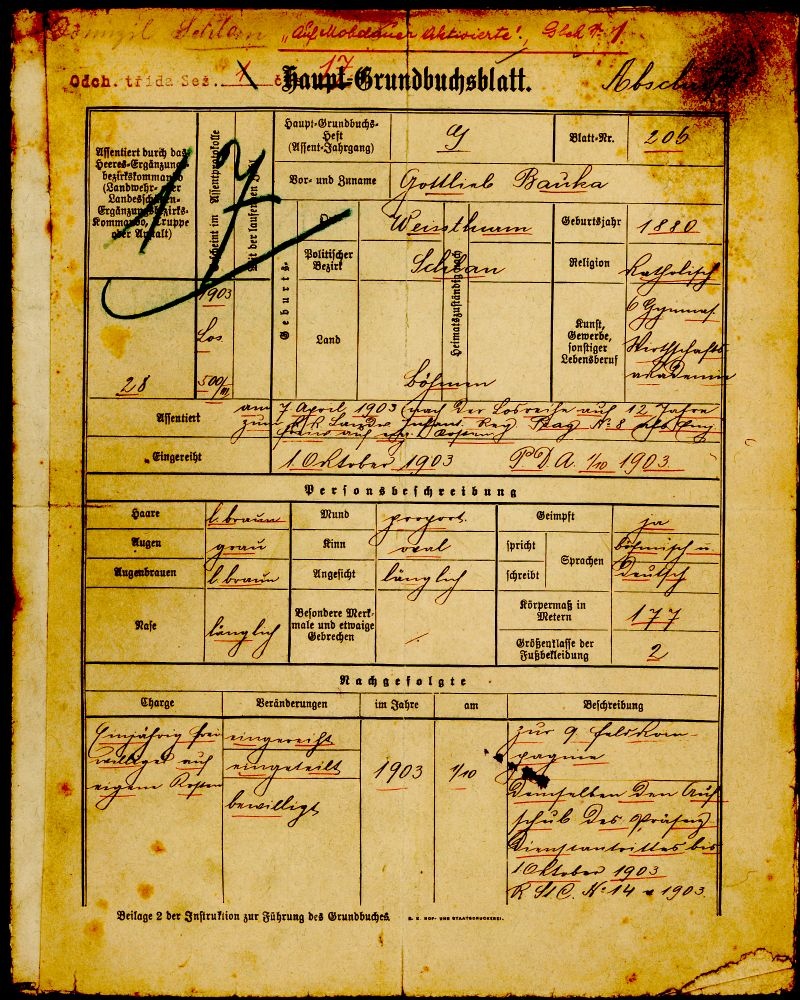 "Auf Mobdauer Aktivierte!"
Odch. třída Sez. 1 č. 17
Haupt-Grundbuchsblatt.
Assentiert durch das
Heeres-Ergänzungs-
bezirkskommando
(Landwehr- oder
Landesschützen-
Ergänzungsbezirks-
Kommando, Truppe
oder Anstalt)
Erscheint im Assentprotokolle
Mit der laufenden Zahl
17
Haupt-Grundbuchs-
Heft
(Assent-Jahrgang)
G
Blatt-Nr.
206
Vor- und Zuname
Gottlieb Bauka
Geburts-
Ort
Weissthurm
Geburtsjahr
1880
Politischer
Bezirk
Schlan
Religion
Katholisch
Land
Heimatszuständig nach
Böhmen
Kunst,
Gewerbe,
sonstiger
Lebensberuf
6 Gymnas.
Wirthschafts-
akademie
1903
Los
28
500/III
Assentiert
am 7 April 1903 nach der Losreihe auf 12 Jahre
zum KK Landw Infant. Reg Prag Nº 8 als Einj.
Eingereiht
1. Oktober 1903 P.D.A. 1/10 1903.
Personsbeschreibung
Haare
l. braun
Mund
proport.
Geimpft
ja
Augen
grau
Kinn
oval
spricht
Sprachen
böhmisch u.
Augenbrauen
l. braun
Angesicht
länglich
schreibt
Deutsch
Nase
länglich
Besondere Merk-
male und etwaige
Gebrechen
Körpermaß in
Metern
177
Größenklasse der
Fußbekleidung
2
Nachgefolgte
Charge
Veränderungen
im Jahre
am
Beschreibung
Einjährig frei-
williger auf
eigene Kosten
eingereiht
eingeteilt
bewilligt
1903
1/10
zur 9. Feldkom-
pagnie
Demselben den Auf-
schub des Präsenz-
Dienstantrittes bis
1 Oktober 1903
R St C. Nº 14 v 1903.
Beilage 2 der Instruktion zur Führung des Grundbuches.
K. K. HOF- UND STAATSDRUCKEREI.